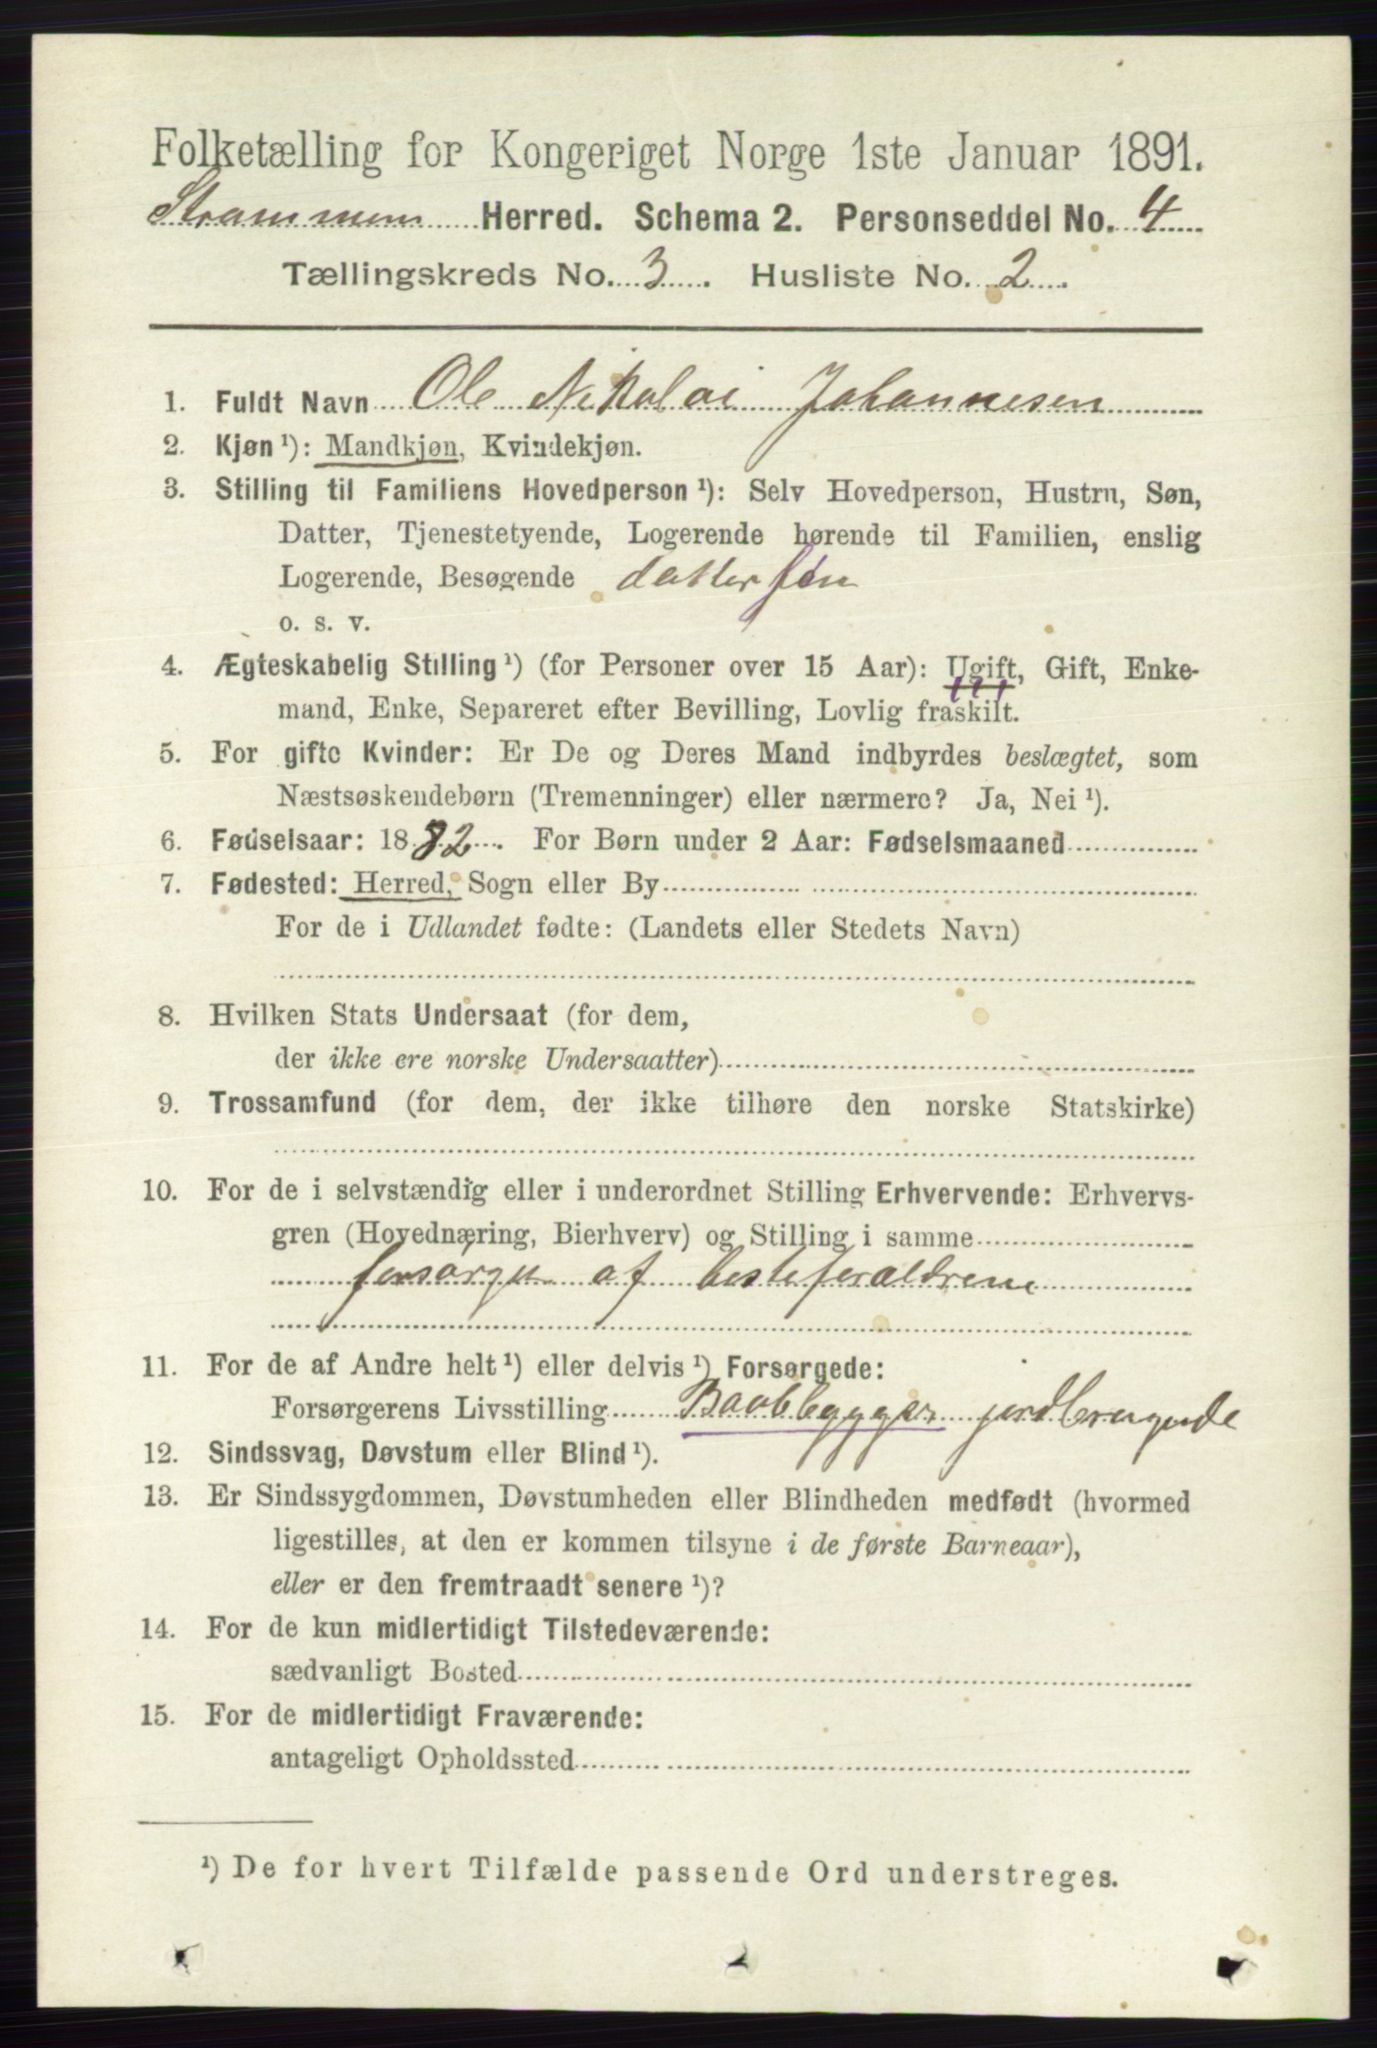 Folketælling for Kongeriget Norge 1ste Januar 1891.
Strømmen Herred. Schema 2. Personseddel No. 4
Tællingskreds No. 3. Husliste No. 2.
1. Fuldt Navn Ole Nikolai Johannesen
2. Kjøn ¹): Mandkjøn, Kvindekjøn.
3. Stilling til Familiens Hovedperson ¹): Selv Hovedperson, Hustru, Søn,
Datter, Tjenestetyende, Logerende hørende til Familien, enslig
Logerende, Besøgende dattersøn
o. s. v.
4. Ægteskabelig Stilling ¹) (for Personer over 15 Aar): Ugift, Gift, Enke-
mand, Enke, Separeret efter Bevilling, Lovlig fraskilt.
5. For gifte Kvinder: Er De og Deres Mand indbyrdes beslægtet, som
Næstsøskendebørn (Tremenninger) eller nærmere? Ja, Nei ¹).
6. Fødselsaar: 1882. For Børn under 2 Aar: Fødselsmaaned
7. Fødested: Herred, Sogn eller By
For de i Udlandet fødte: (Landets eller Stedets Navn)
8. Hvilken Stats Undersaat (for dem,
der ikke ere norske Undersaatter)
9. Trossamfund (for dem, der ikke tilhøre den norske Statskirke)
10. For de i selvstændig eller i underordnet Stilling Erhvervende: Erhvervs-
gren (Hovednæring, Bierhverv) og Stilling i samme
forsørges af besteforældrene
11. For de af Andre helt ¹) eller delvis ¹) Forsørgede:
Forsørgerens Livsstilling Baadbygger jordbrugende
12. Sindssvag, Døvstum eller Blind ¹).
13. Er Sindssygdommen, Døvstumheden eller Blindheden medfødt (hvormed
ligestilles, at den er kommen tilsyne i de første Barneaar),
eller er den fremtraadt senere ¹)?
14. For de kun midlertidigt Tilstedeværende:
sædvanligt Bosted
15. For de midlertidigt Fraværende:
antageligt Opholdssted
¹) De for hvert Tilfælde passende Ord understreges.